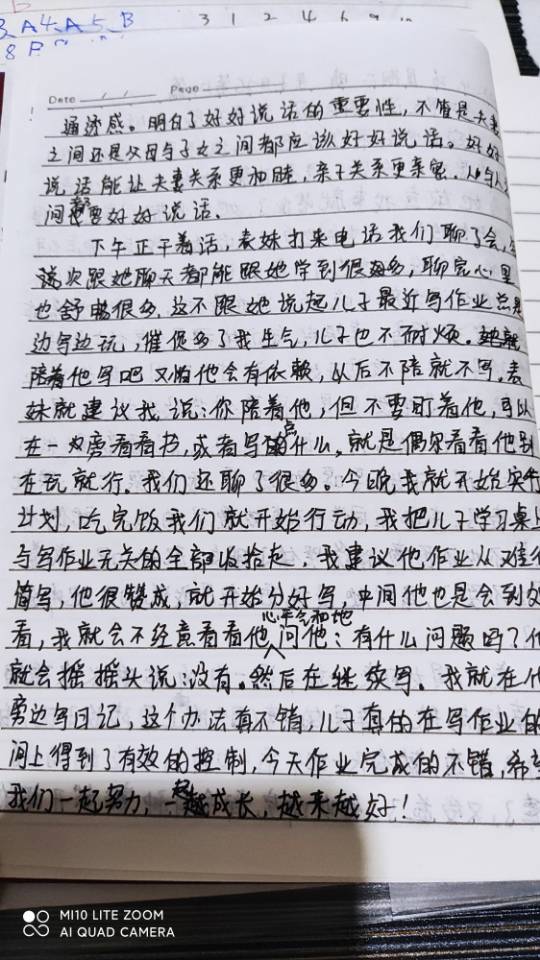 3、A4、A5、B
3 1 2 4 6 9
8 P
Date / / Page
通透感。明白了好好说话的重要性,不管是夫妻
之间还是父母与子女之间都应该好好说话。好好
说话能让夫妻关系更和睦,亲子关系更亲密,人与人
间都要好好说话。
下午正干着活,表妹打来电话我们聊了会,
每次跟她聊天都能跟她学到很多,聊完心里
也舒畅很多,这不跟她说起儿子最近写作业总是
边写边玩,催促多了我生气,儿子也不耐烦。
陪着他写吧又怕他会有依赖,以后不陪就不写,表
妹就建议我说:你陪着他,但不要盯着他,可以
在一旁看看书,或者写点什么。就是偶尔看看他别
在玩就行。我们还聊了很多。今晚我就开始实行
计划,吃完饭我们就开始行动,我把儿子学习桌上
与写作业无关的全部收拾走,我建议他作业从难往
简写,他很赞成,就开始分好写,中间他也是会到处
心平气和地
看,我就会不经意看看他问他:有什么问题吗?他
就会摇摇头说:没有。然后在继续写。我就在他
旁边写日记,这个办法真不错,儿子真的在写作业的
间上得到了有效的控制,今天作业完成的不错,希望
我们一起努力,一起成长,越来越好!
MI10 LITE ZOOM
AI QUAD CAMERA